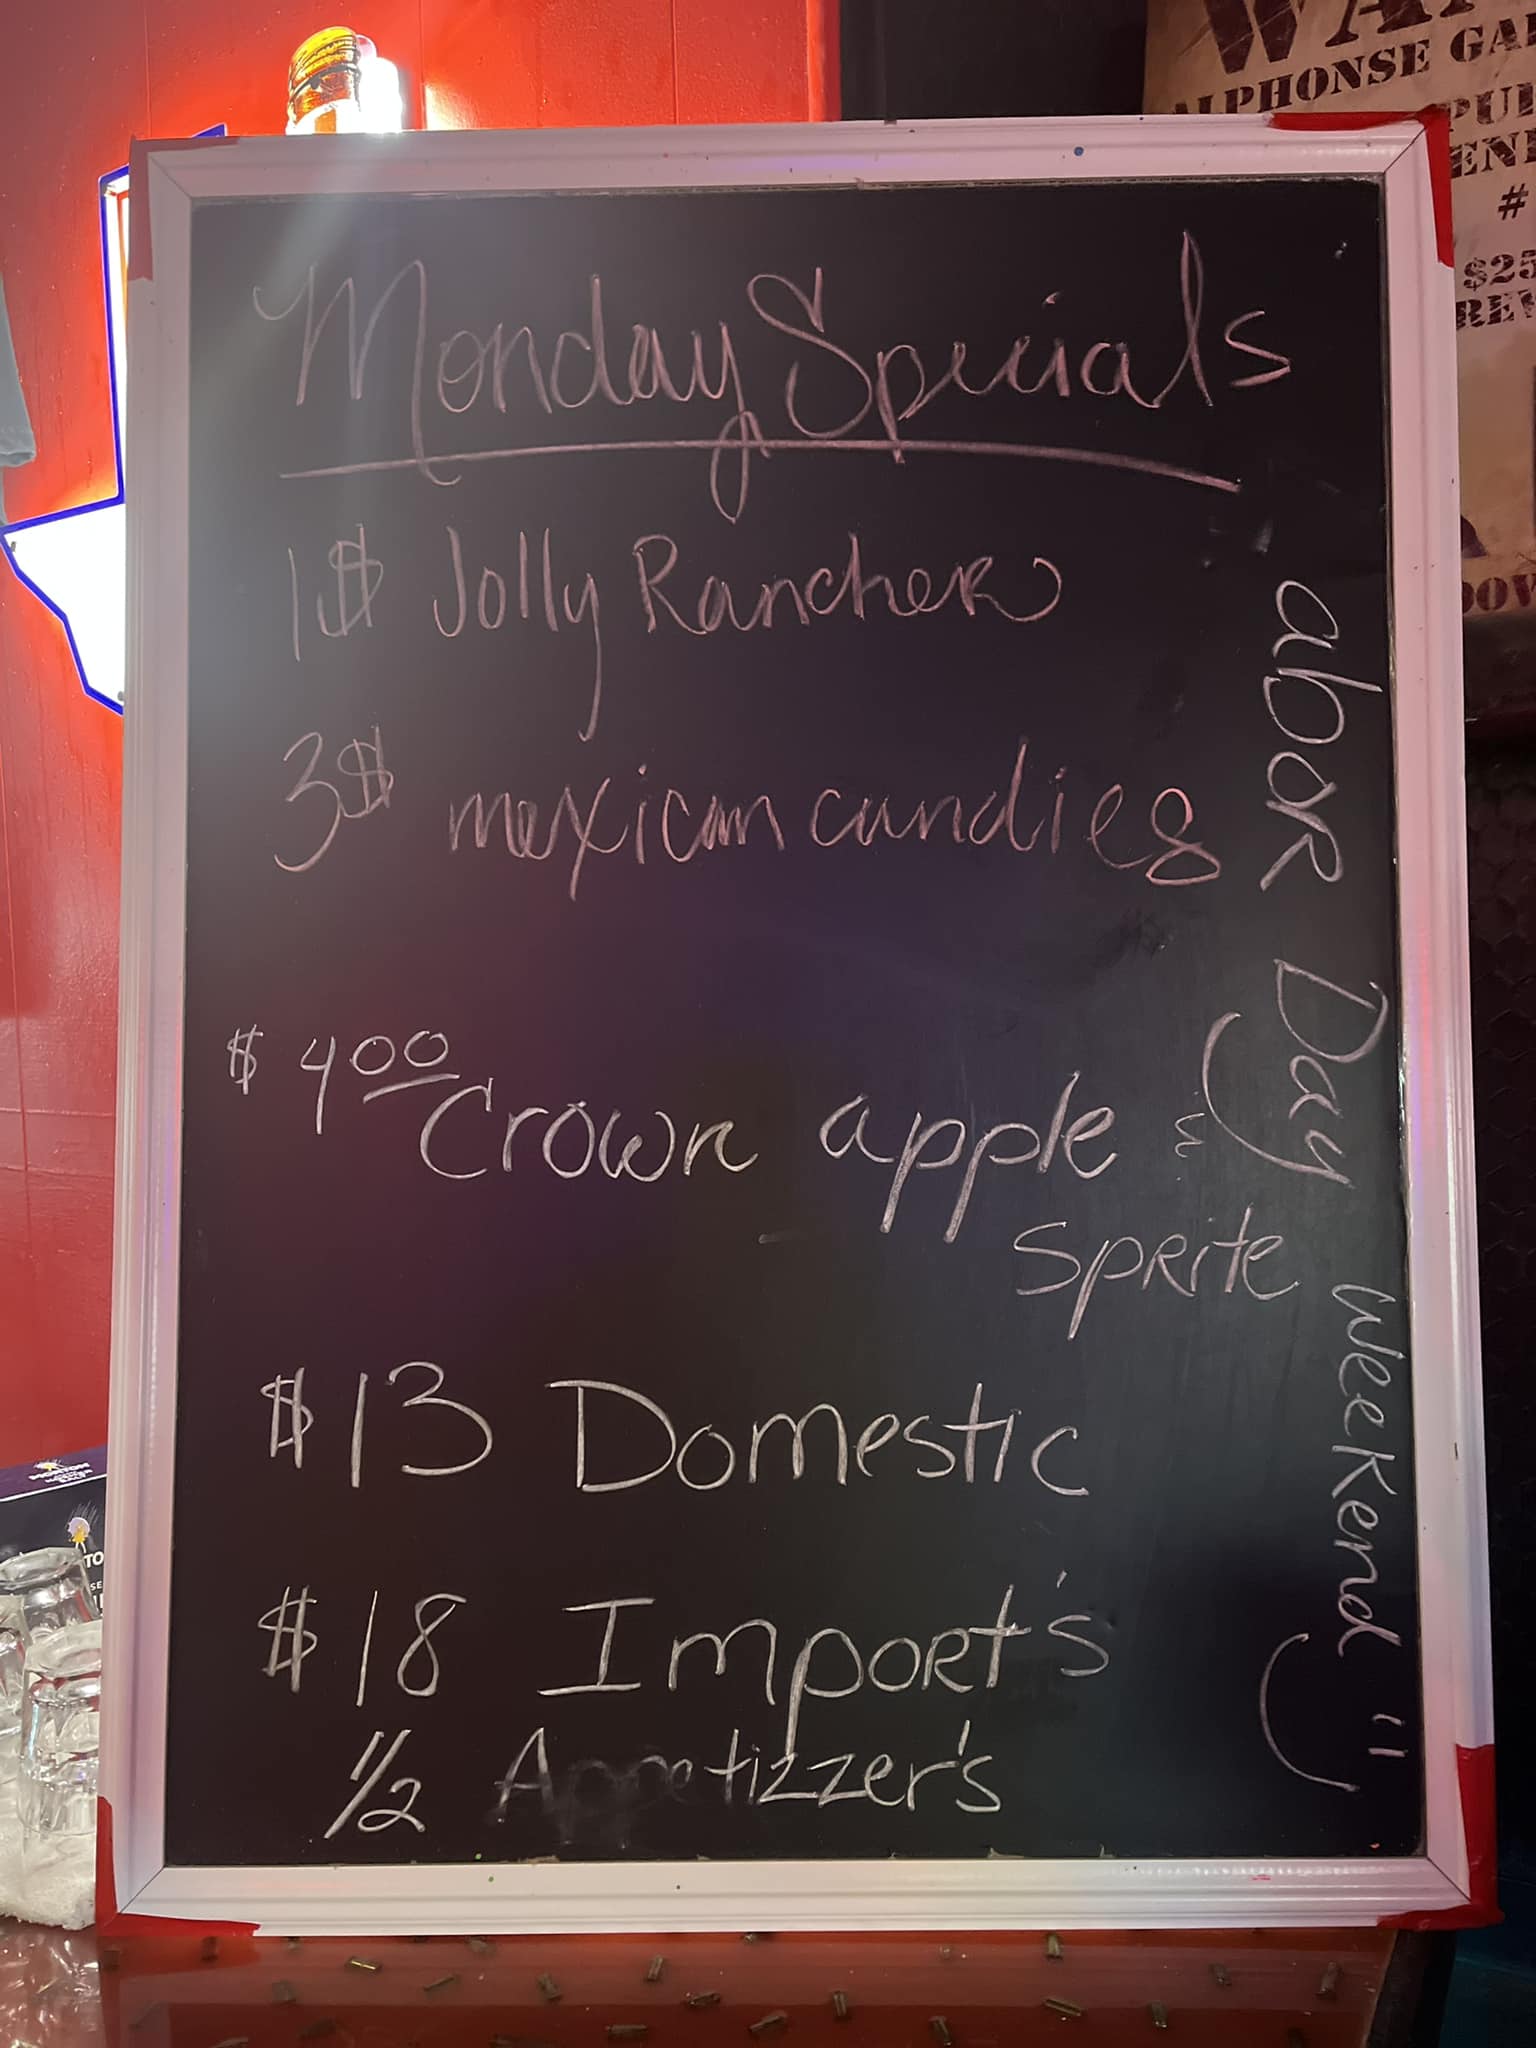 Monday Specials
1$ Jolly Rancher
3$ mexican candies
$ 4.00 Crown apple
Sprite
$13 Domestic
$18 Import's
1/2 Appetizzer's
abor Day weekend
ALPHONSE
#
$25